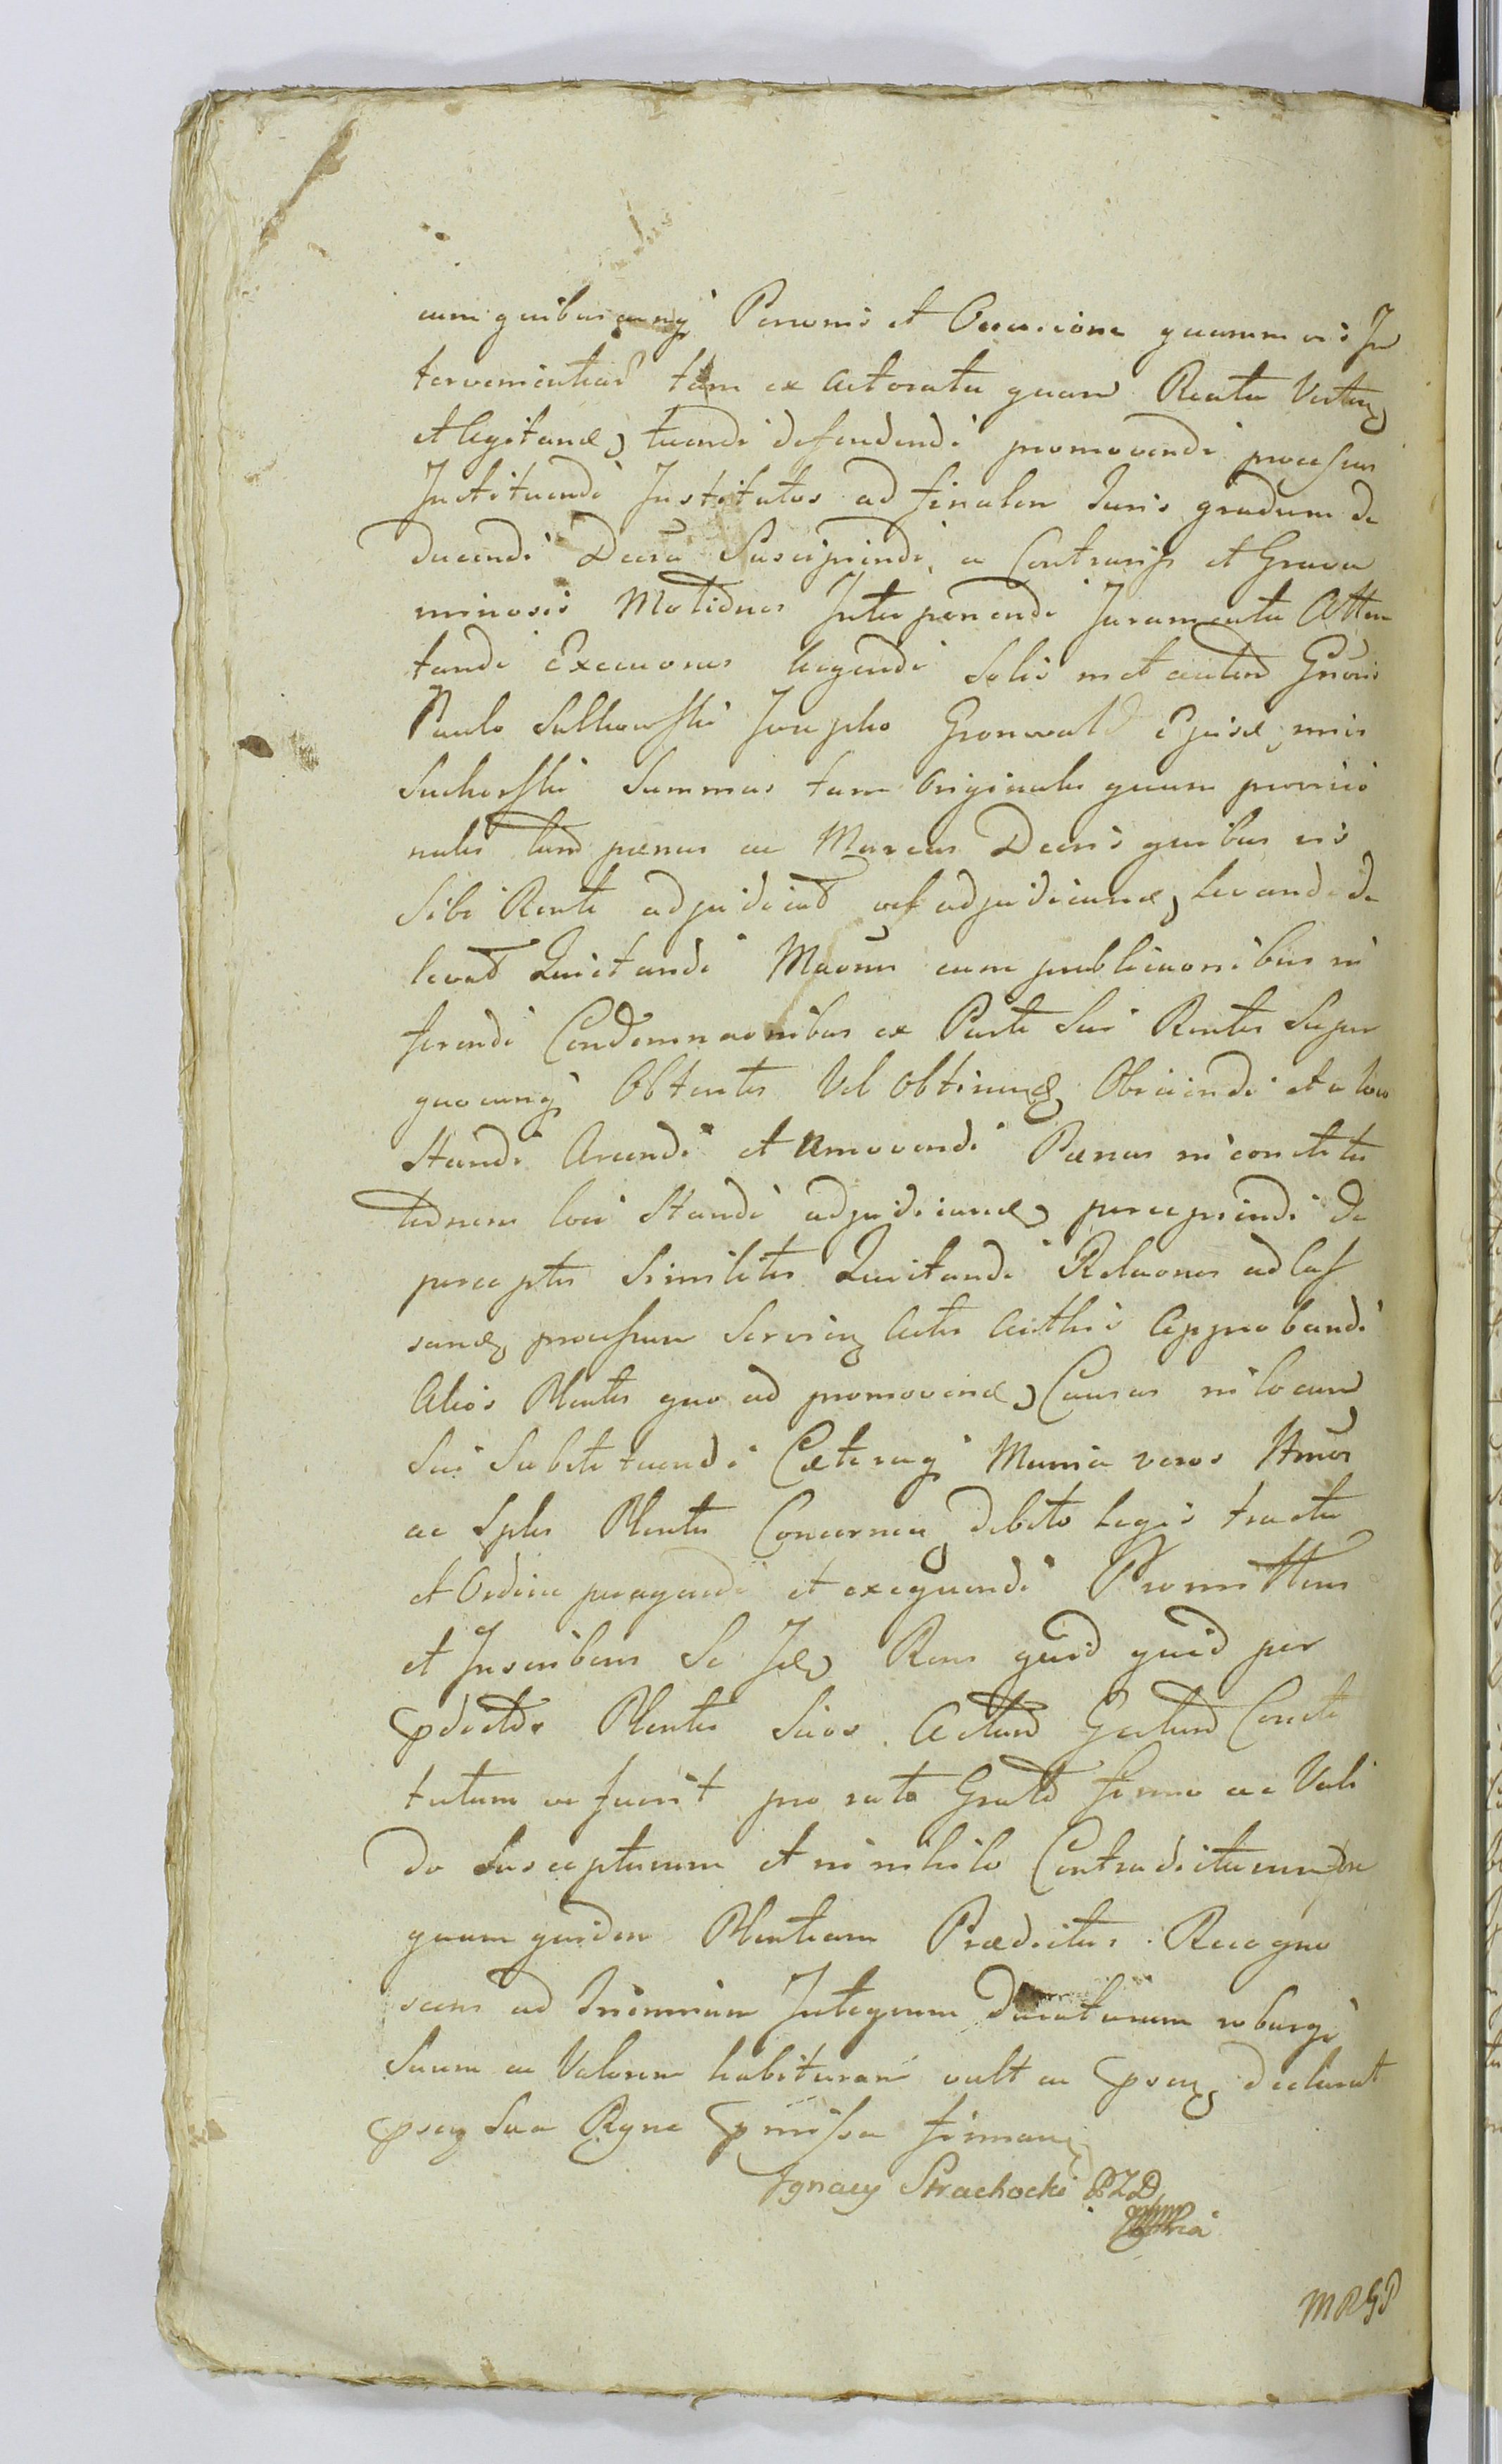 cum quibuscunq Personis et Occasione quarumvis In
tervenientiar tam ex actoratu quam Reatu Verten
et legitand, tuendi defendendi promovendi processus
Instituendi Institutos ad finalem Juris gradum de
ducendi Decra Suscipiendi, a Contrariis et Grava
minosis Motiones Interponendi Juramenta Atten
tandi Execuones peragendi Solis met autem Gnosis
Paulo Sulkowski Josepho Gronwald
Suchorski Summas tam Originales quam provisio
nales tum pænas ac Marcas Decris quibusvis
Sibi Renti adjudicat vel adjudicand, levandi de
levat Quietandi Maonus cum publicaonibus in
ferendi Condemnaonibus ex Parte Sui Rentis Super
quocunq Obtentis Vel obtinend Obiiciendi et a loco
Standi Arcendi et Amovendi Pænas in constitu
tionem loci Standi adjudicand, percipiendi de
perceptis Similiter Quietandi Relaones ad Cas
sand, processum Servien Actis Authis Approbandi
Alios Plentes quo ad promovend, Causas in locum
Sui Substituendi Cæteraq Munia veros Ittmos
ac Sples Plentes Concernen debito legis tractu
et Ordine peragendi et exequendi Promittens
et Inscribens Se Id, Rens quid quid per
pdictos Plentes Suos Actum Gestum Consti
tutum ve fuerit pro rato Grato firmo ac Vali
do Suscepturum et in nihilo Contradicturum
quam quidem Plentiam Prædictus Recogno
scens ad Triennium Integrum Duraturum roburq
Suum ac Valorem habituram vult ac psen declarat
psen Sua Rgne pmissa firman
Ignacy Strachocki PZD
MRGP